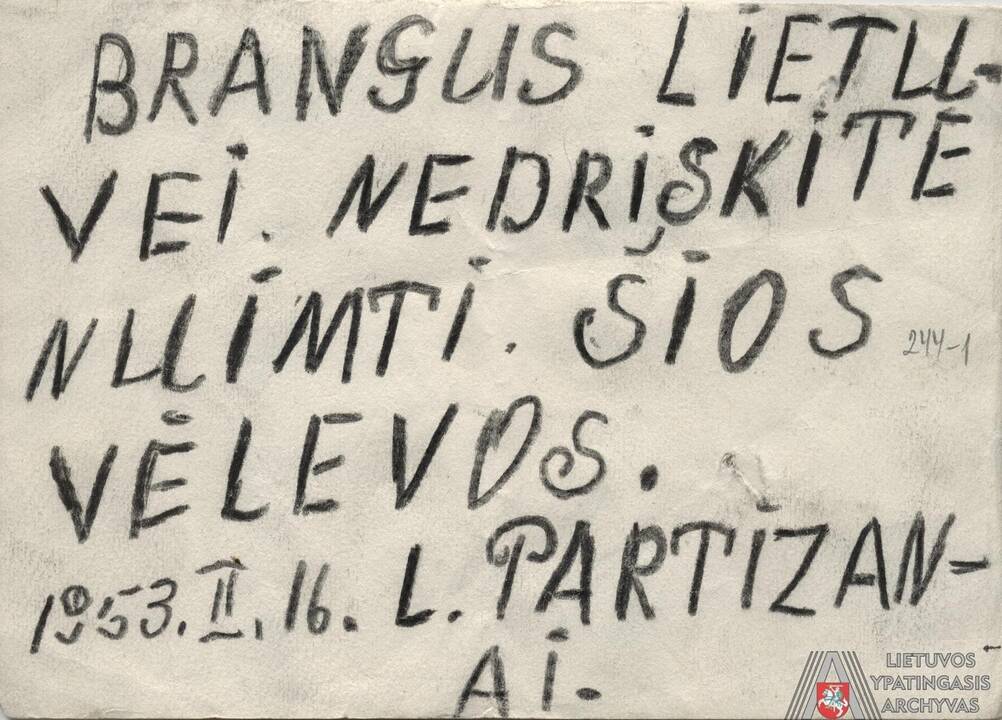 BRANGUS LIETU-
VEI. NEDRĮSKITE
NUIMTI. ŠIOS
244-1
VĖLEVOS.
1953.II.16. L. PARTIZAN-
AI.
LIETUVOS
YPATINGASIS
ARCHYVAS